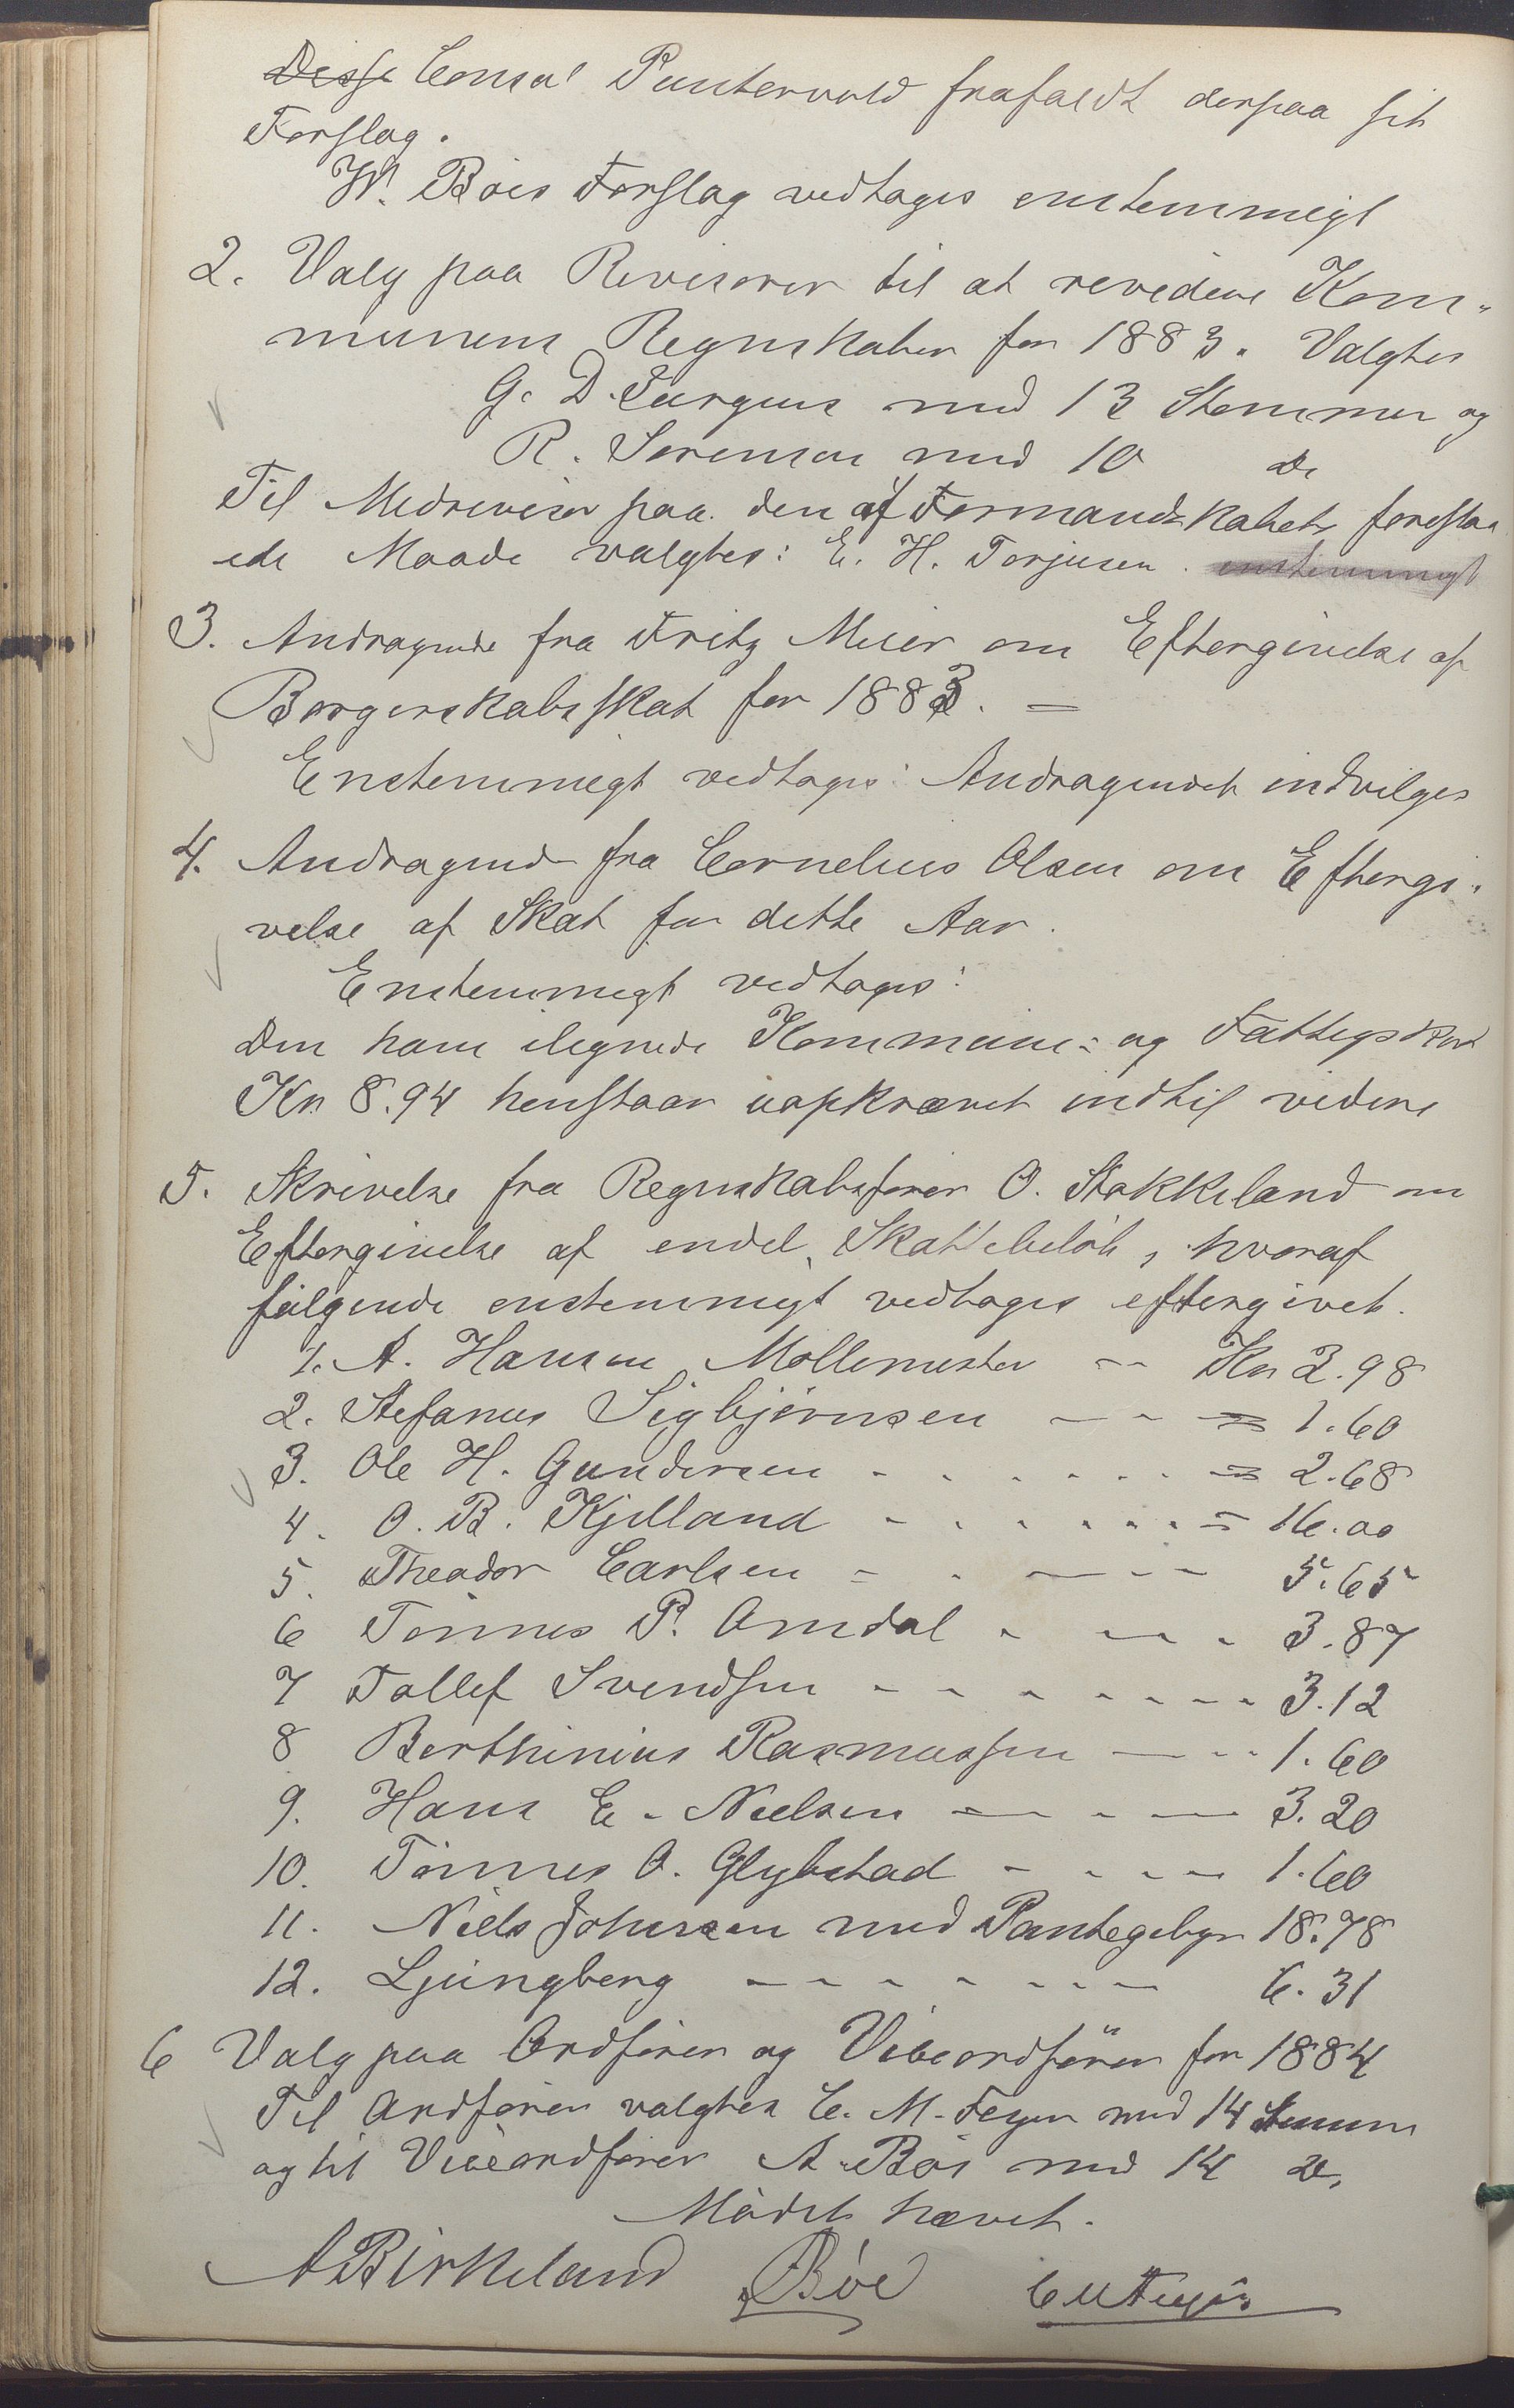 Disse Consul Puntervold frafaldt derpaa sit
Forslag.
W. Böes Forslag vedtages enstemmigt
2. Valg paa Revisorer til at revidere Kom-
munens Regnskaber for 1883. Valgtes
G. D. Jürgens med 13 Stemmer og
R. Sörensen med 10 do
Til Medrevisor paa den af Formandskabet foreslaa
ede Maade valgtes: E. H. Torjusen. enstemmigt
3. Andragende fra Fritz Meier om Eftergivelse af
Borgerskabsskat for 1883. —
Enstemmigt vedtages: Andragendet indvilges
4. Andragende fra Cornelius Olsen om Eftergi-
velse af Skat for dette Aar.
Enstemmigt vedtages:
Den ham ilignede Kommune- og Fattigskat
Kr 8.94 henstaar uopkrævet indtil videre
5. Skrivelse fra Regnskabsförer O. Stokkeland om
Eftergivelse af endel Skattebelöb, hvoraf
fölgende enstemmigt vedtages eftergivet.
1. A. Hansen Möllemester -- Kr 2.98
2. Stefanus Sigbjörnsen - - - 1.60
3. Ole H. Gundersen - - - - - - 2.68
4. O. B. Kjelland - - - - - - - 16.00
5. Theodor Carlsen - - - - - 5.65
6 Tönnes P. Omdal - - - - 3.87
7 Tollef Svendsen - - - - - - - - 3.12
8 Berthinius Rasmussen - - - 1.60
9. Hans E. Nielsen - - - - 3.20
10. Tönnes O. Glybstad - - - - 1.60
11. Niels Johnsen med Pantegebyr 18.78
12. Ljungberg - - - - - - - 6.31
6 Valg paa Ordförer og Viceordförer for 1884
Til Ordförer valgtes C. M. Feyer med 14 Stemmer
og til Viceordförer A. Böe med 14 do,
Mödet hævet.
A Birkeland Böe C M Feyer